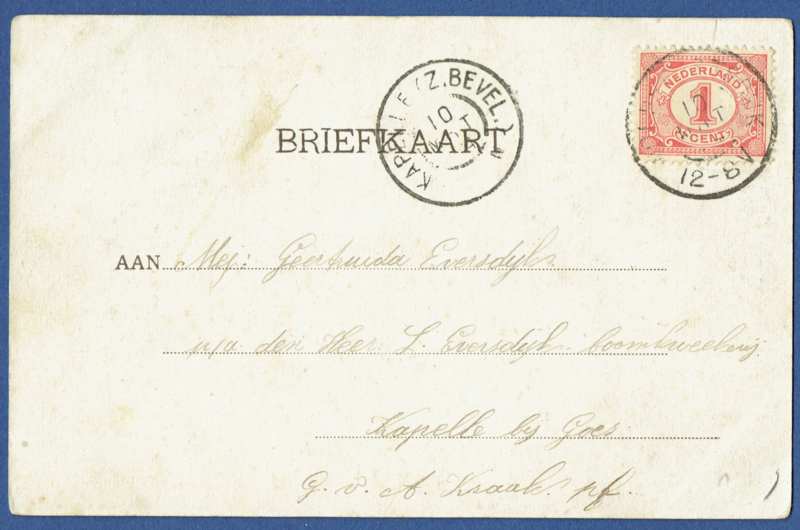 KAPELLE (Z.BEVEL.)
10
NEDERLAND
1
CENT
17
12-8V
BRIEFKAART
AAN Mej: Geertruida Eversdijk
p/a den Heer L. Eversdijk boomkweekerij
Kapelle bij Goes
G. v. A. Kraak pf.